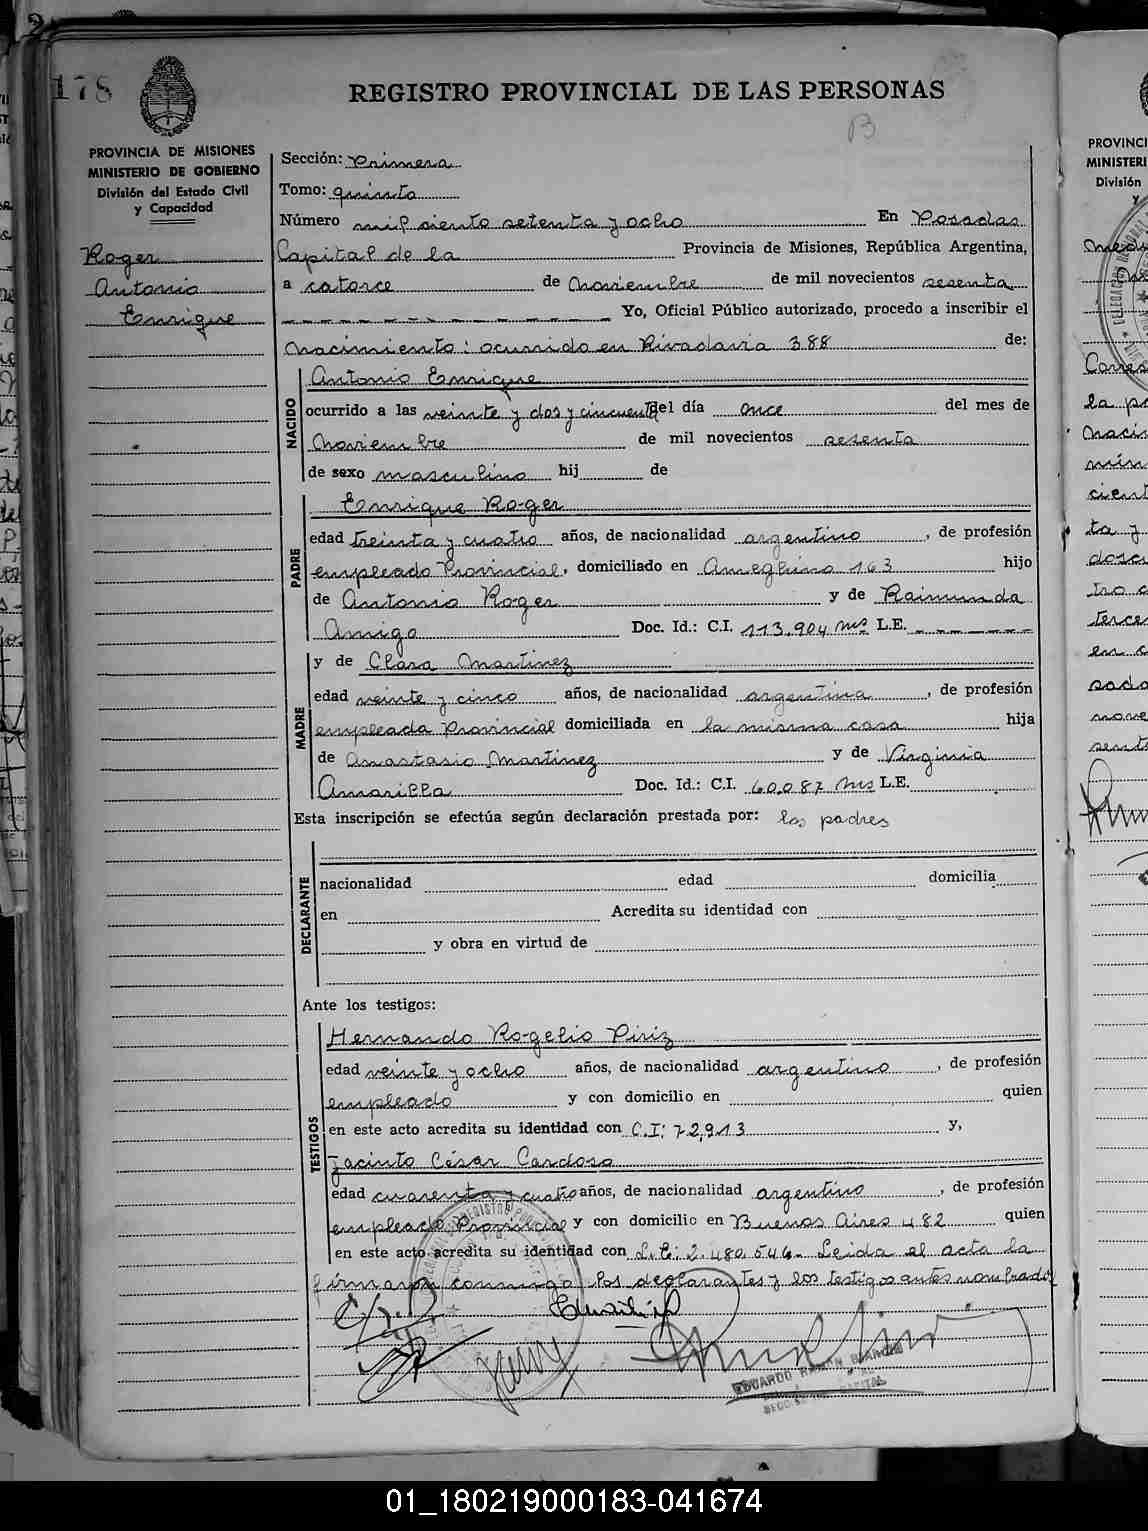 178
REGISTRO PROVINCIAL DE LAS PERSONAS
B
PROVINCIA DE MISIONES
MINISTERIO DE GOBIERNO
División del Estado Civil
y Capacidad
Roger
Antonio
Enrique
Sección: Primera
Tomo: quinto
Número mil ciento setenta y ocho En Posadas
Capital de la Provincia de Misiones, República Argentina,
a catorce de Noviembre de mil novecientos sesenta
Yo, Oficial Público autorizado, procedo a inscribir el
Nacimiento: ocurrido en Rivadavia 388 de:
NACIDO
Antonio Enrique
ocurrido a las veinte y dos y cincuenta del día once del mes de
Noviembre de mil novecientos sesenta
de sexo masculino hij de
PADRE
Enrique Roger
edad treinta y cuatro años, de nacionalidad argentino, de profesión
empleado Provincial, domiciliado en Ameghino 163 hijo
de Antonio Roger y de Raimunda
Amigo Doc. Id.: C.I. 113.904 Mns L.E.
MADRE
y de Clara Martinez
edad veinte y cinco años, de nacionalidad argentina, de profesión
empleada Provincial domiciliada en la misma casa hija
de Anastasio Martinez y de Virginia
Amarilla Doc. Id.: C.I. 60.087 Mns L.E.
Esta inscripción se efectúa según declaración prestada por: los padres
DECLARANTE
nacionalidad edad domicilia
en Acredita su identidad con
y obra en virtud de
Ante los testigos:
TESTIGOS
Hernando Rogelio Piriz
edad veinte y ocho años, de nacionalidad argentino, de profesión
empleado y con domicilio en quien
en este acto acredita su identidad con C.I: 72,913 y,
Jacinto César Cardoso
edad cuarenta y cuatro años, de nacionalidad argentino, de profesión
empleado Provincial y con domicilio en Buenos Aires 482 quien
en este acto acredita su identidad con L.E: 2.480.546. Leida el acta la
firmaron conmigo los declarantes y los testigos antes nombrados
EDUARDO RAMON BIANCHI
PROVINCI
MINISTERI
División
01_180219000183-041674